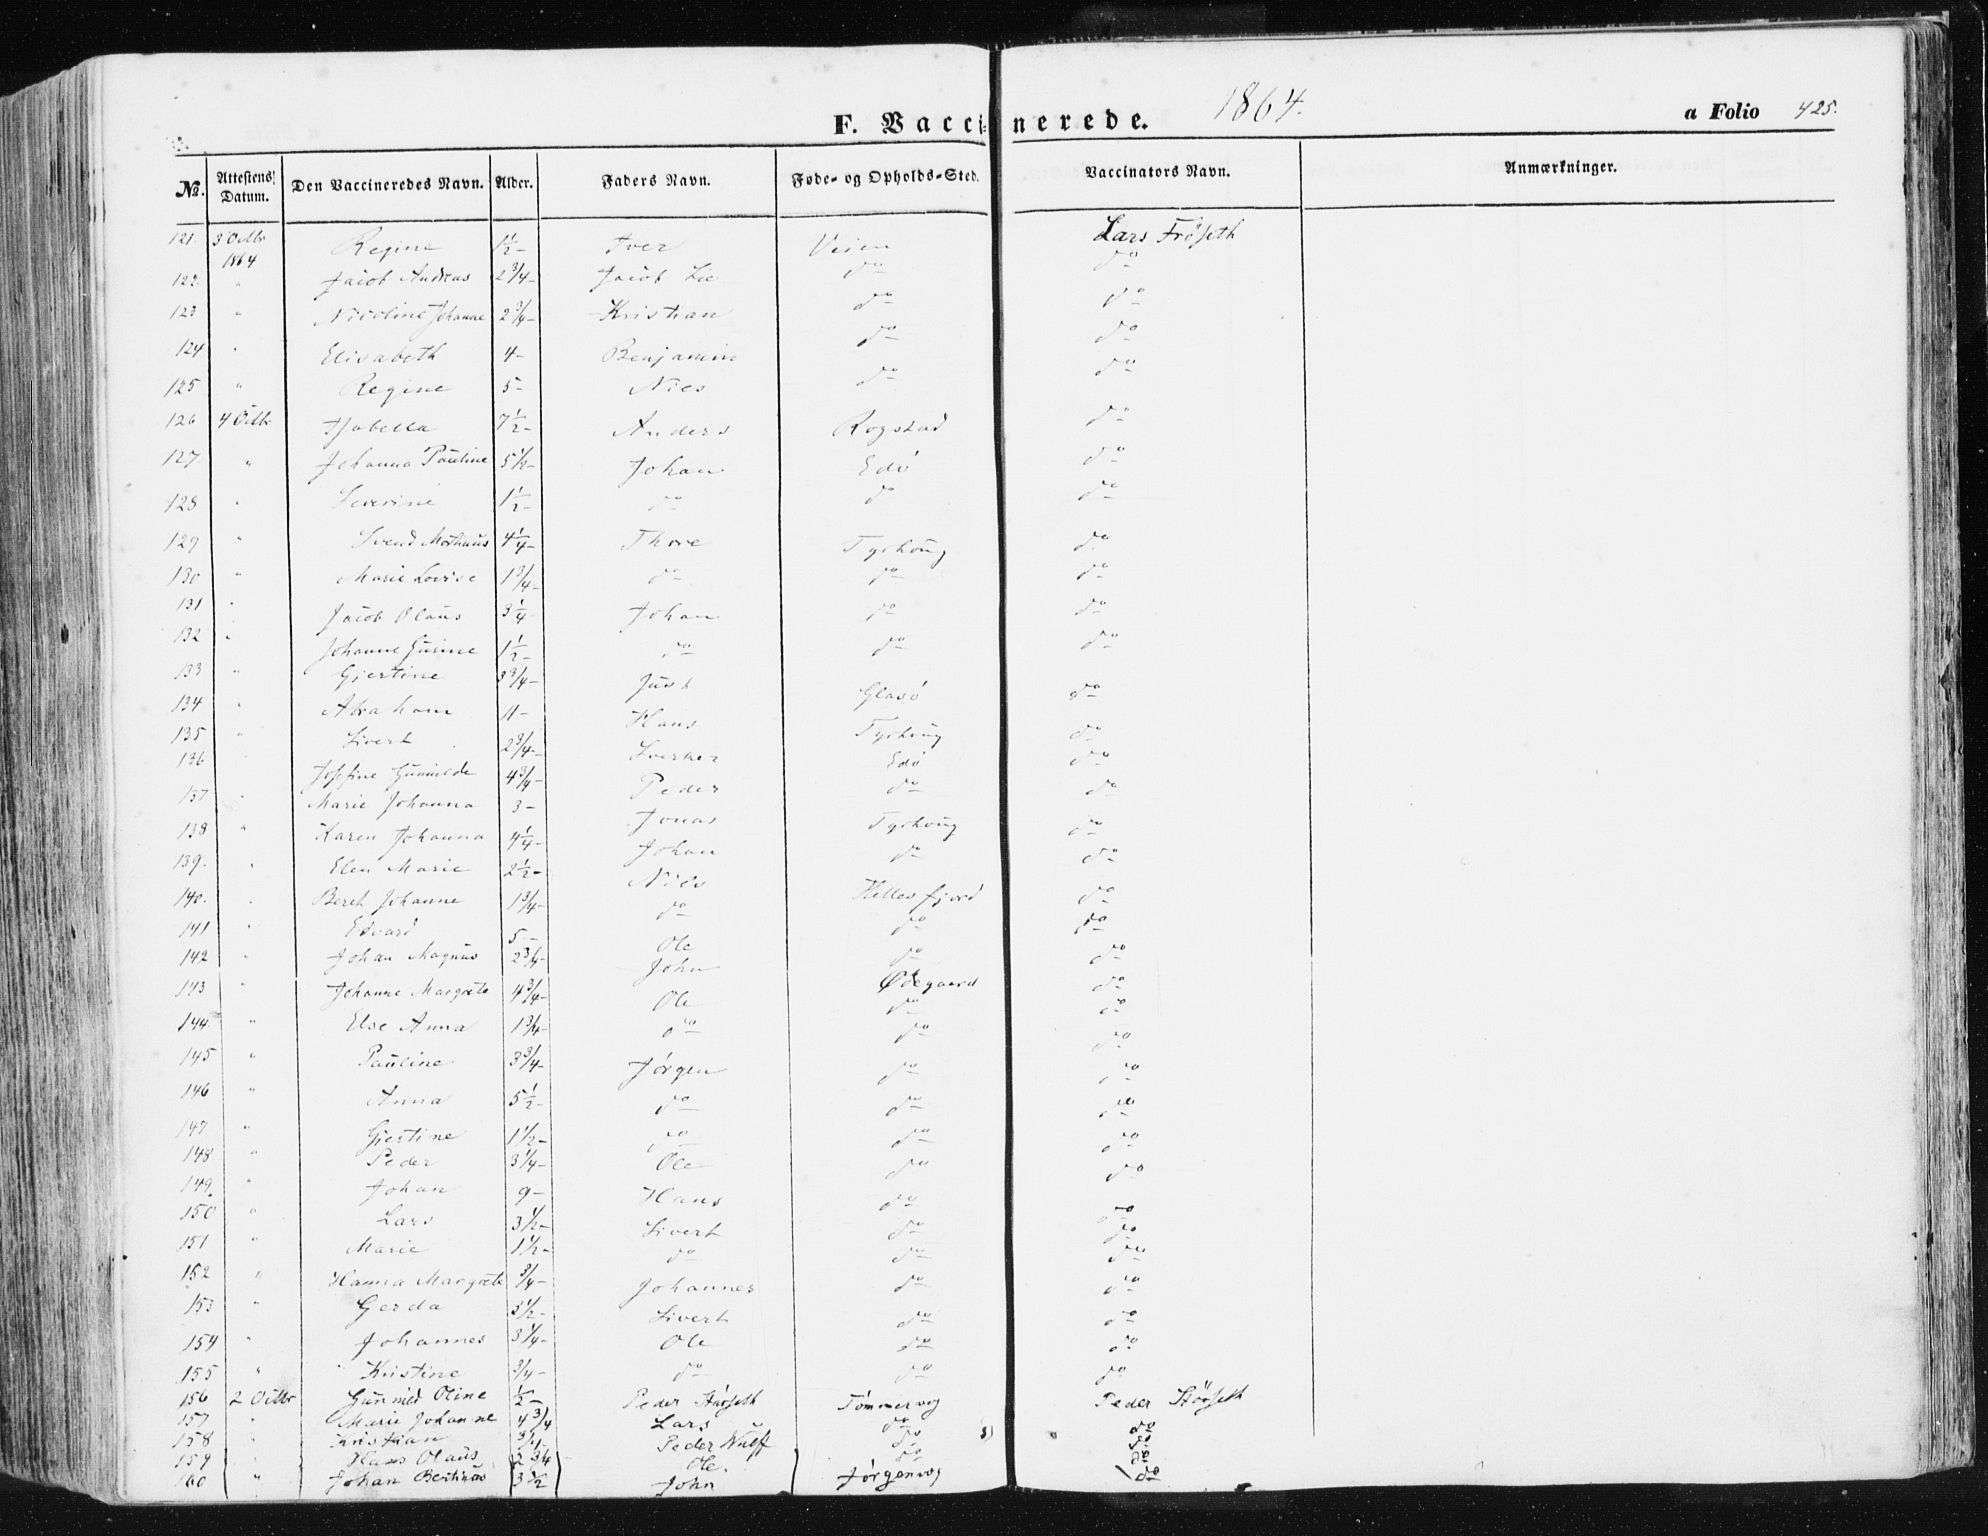 F. Vaccinerede. 1864. a Folio 425.
No. Attestens Datum. Den Vaccineredes Navn. Alder. Faders Navn. Føde- og Opholds-Sted. Vaccinators Navn. Anmærkninger.
121. 3 Octbr 1864 Regine 1½- Iver Veien Lars Frøseth
122. " Jacob Andreas 2¾- Jacob Lie do do
123 " Nicoline Johanne 2¾- Kristian do do
124 " Elisabeth 4- Benjamin do do
125 " Regine 5- Niels do do
126 4 Octbr Isabella 7½- Anders Rogstad do
127 " Johanna Pauline 5½- Johan Edø do
128 " Severine 1½- do do do
129 " Svend Mathæus 4¼- Thore Tyrhoug do
130 " Marie Lovise 1¾- do do do
131 " Jacob Olaus 3¼ Johan do do
132 " Johanne Gurine 1½- do do do
133 " Gjertine 3¾- Just Glasø do
134 " Abraham 11- Hans Tyrhoug do
135 " Sivert 2¾- Sverker Edø do
136 " Josefine Gunnilde 4¾- Peder do do
137 " Marie Johanna 3- Jonas Tyrhoug do
138 " Karen Johanna 4¼- Johan do do
139. " Elen Marie 2½- Niels Hellesfjord do
140. " Bereth Johanne 1¾- do do do
141 " Edvard 5- Ole do do
142 " Johan Magnus 2¾- John Ødegaard do
143 " Johanne Margrete 4¾- Ole do do
144. " Else Anna 1¾- do do do
145 " Pauline 3¾- Jørgen do do
146 " Anna 5½- do do do
147 " Gjertine 1½- do do do
148 " Peder 3¼- Ole do do
149. " Johan 9- Hans do do
150 " Lars 3½- Sivert do do
151 " Marie 1½- do do do
152 " Hanna Margrete ¾- Johannes do do
153 " Gerda 3½- Sivert do do
154 " Johannes 3¼- Ole do do
155 " Kristine ¾- do do do
156 2 Octbr Gunnild Oline ½- Peder Størseth Tømmervog Peder Størseth
157 " Marie Johanne 4¾ Lars do do
158 " Kristian ¾- Peder Wulff do do
159 " Hans Olaus 2¾ Ole. do do
160 " Johan Bertinus 3½ John Jørgenvog do